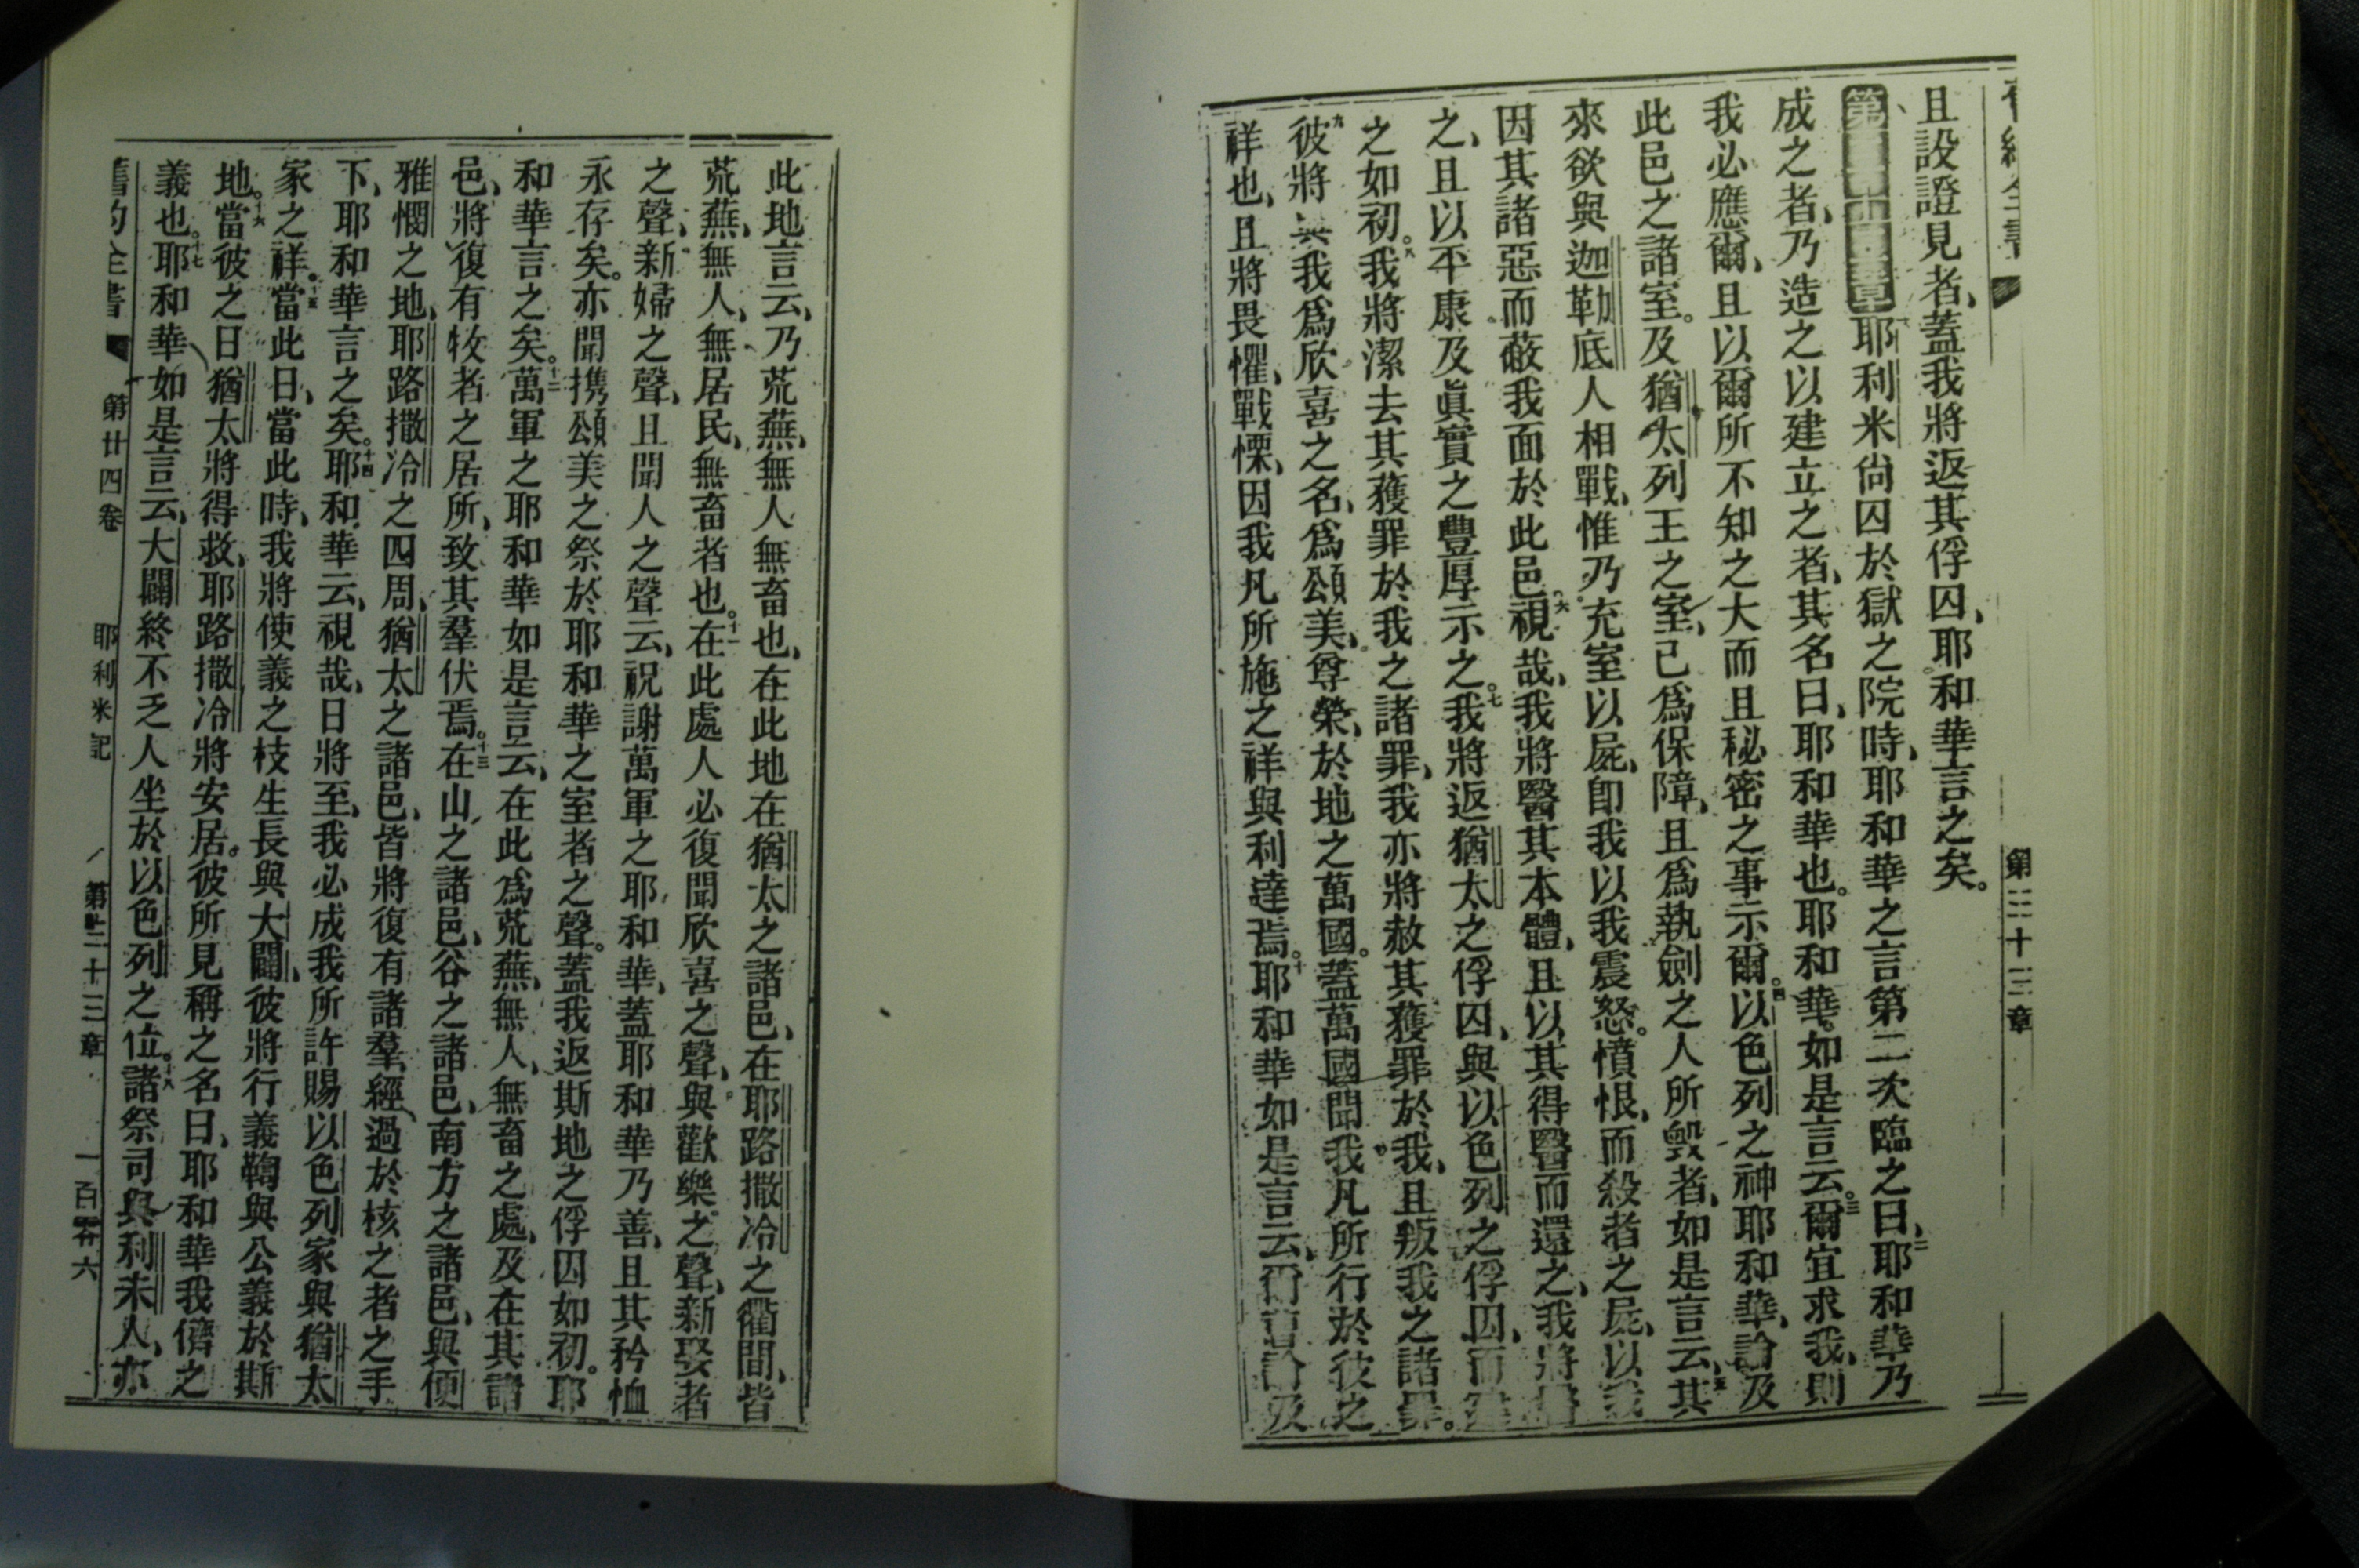 第三十三章
且設證見者、蓋我將返其俘囚、耶和華言之矣。
耶利米尙囚於獄之院時、耶和華之言第二次臨之曰、二耶和華乃
成之者、乃造之以建立之者、其名曰、耶和華也。耶和華如是言云。三爾宜求我、則
我必應爾、且以爾所不知之大而且秘密之事示爾。四以色列之神耶和華、論及
此邑之諸室。及猶太列王之室、已爲保障、且爲執劍之人所毀者、如是言云、五其
來欲與迦勒底人相戰、惟乃充室以屍、卽我以我震怒。憤恨、而殺者之屍、以我
因其諸惡而蔽我面於此邑。六視哉、我將醫其本體、且以其得醫而還之、我將醫
之、且以平康及眞實之豐厚示之。七我將返猶太之俘囚、與以色列之俘囚、而建
之如初。八我將潔去其獲罪於我之諸罪、我亦將赦其獲罪於我、且叛我之諸罪。
九彼將與我爲欣喜之名、爲頌美、尊榮、於地之萬國。蓋萬國聞我凡所行於彼之
祥也、且將畏懼、戰慄、因我凡所施之祥與利達焉。十耶和華如是言云、爾曹論及
此地言云、乃荒蕪、無人無畜也、在此地在猶太之諸邑、在耶路撒冷之衢間、皆
荒蕪、無人、無居民、無畜者也。十一在此處人必復聞欣喜之聲、與歡樂之聲、新娶者
之聲、新婦之聲、且聞人之聲云、祝謝萬軍之耶和華、蓋耶和華乃善、且其矜恤
永存矣。亦聞携頌美之祭於耶和華之室者之聲。蓋我返斯地之俘囚如初。耶
和華言之矣。十二萬軍之耶和華如是言云、在此爲荒蕪、無人、無畜之處、及在其諸
邑、將復有牧者之居所、致其羣伏焉。十三在山之諸邑、谷之諸邑、南方之諸邑、與便
雅憫之地、耶路撒冷之四周、猶太之諸邑、皆將復有諸羣、經過於核之者之手
下、耶和華言之矣。十四耶和華云、視哉、日將至、我必成我所許賜以色列家與猶太
家之祥。十五當此日、當此時、我將使義之枝生長與大闢、彼將行義鞫與公義於斯
地。十六當彼之日猶太將得救、耶路撒冷將安居。彼所見稱之名曰、耶和華我儕之
義也。十七耶和華如是言云、大闢終不乏人坐於以色列之位。十八諸祭司與利未人、亦
舊約全書 第廿四卷 耶利米記 第三十三章 一百零六